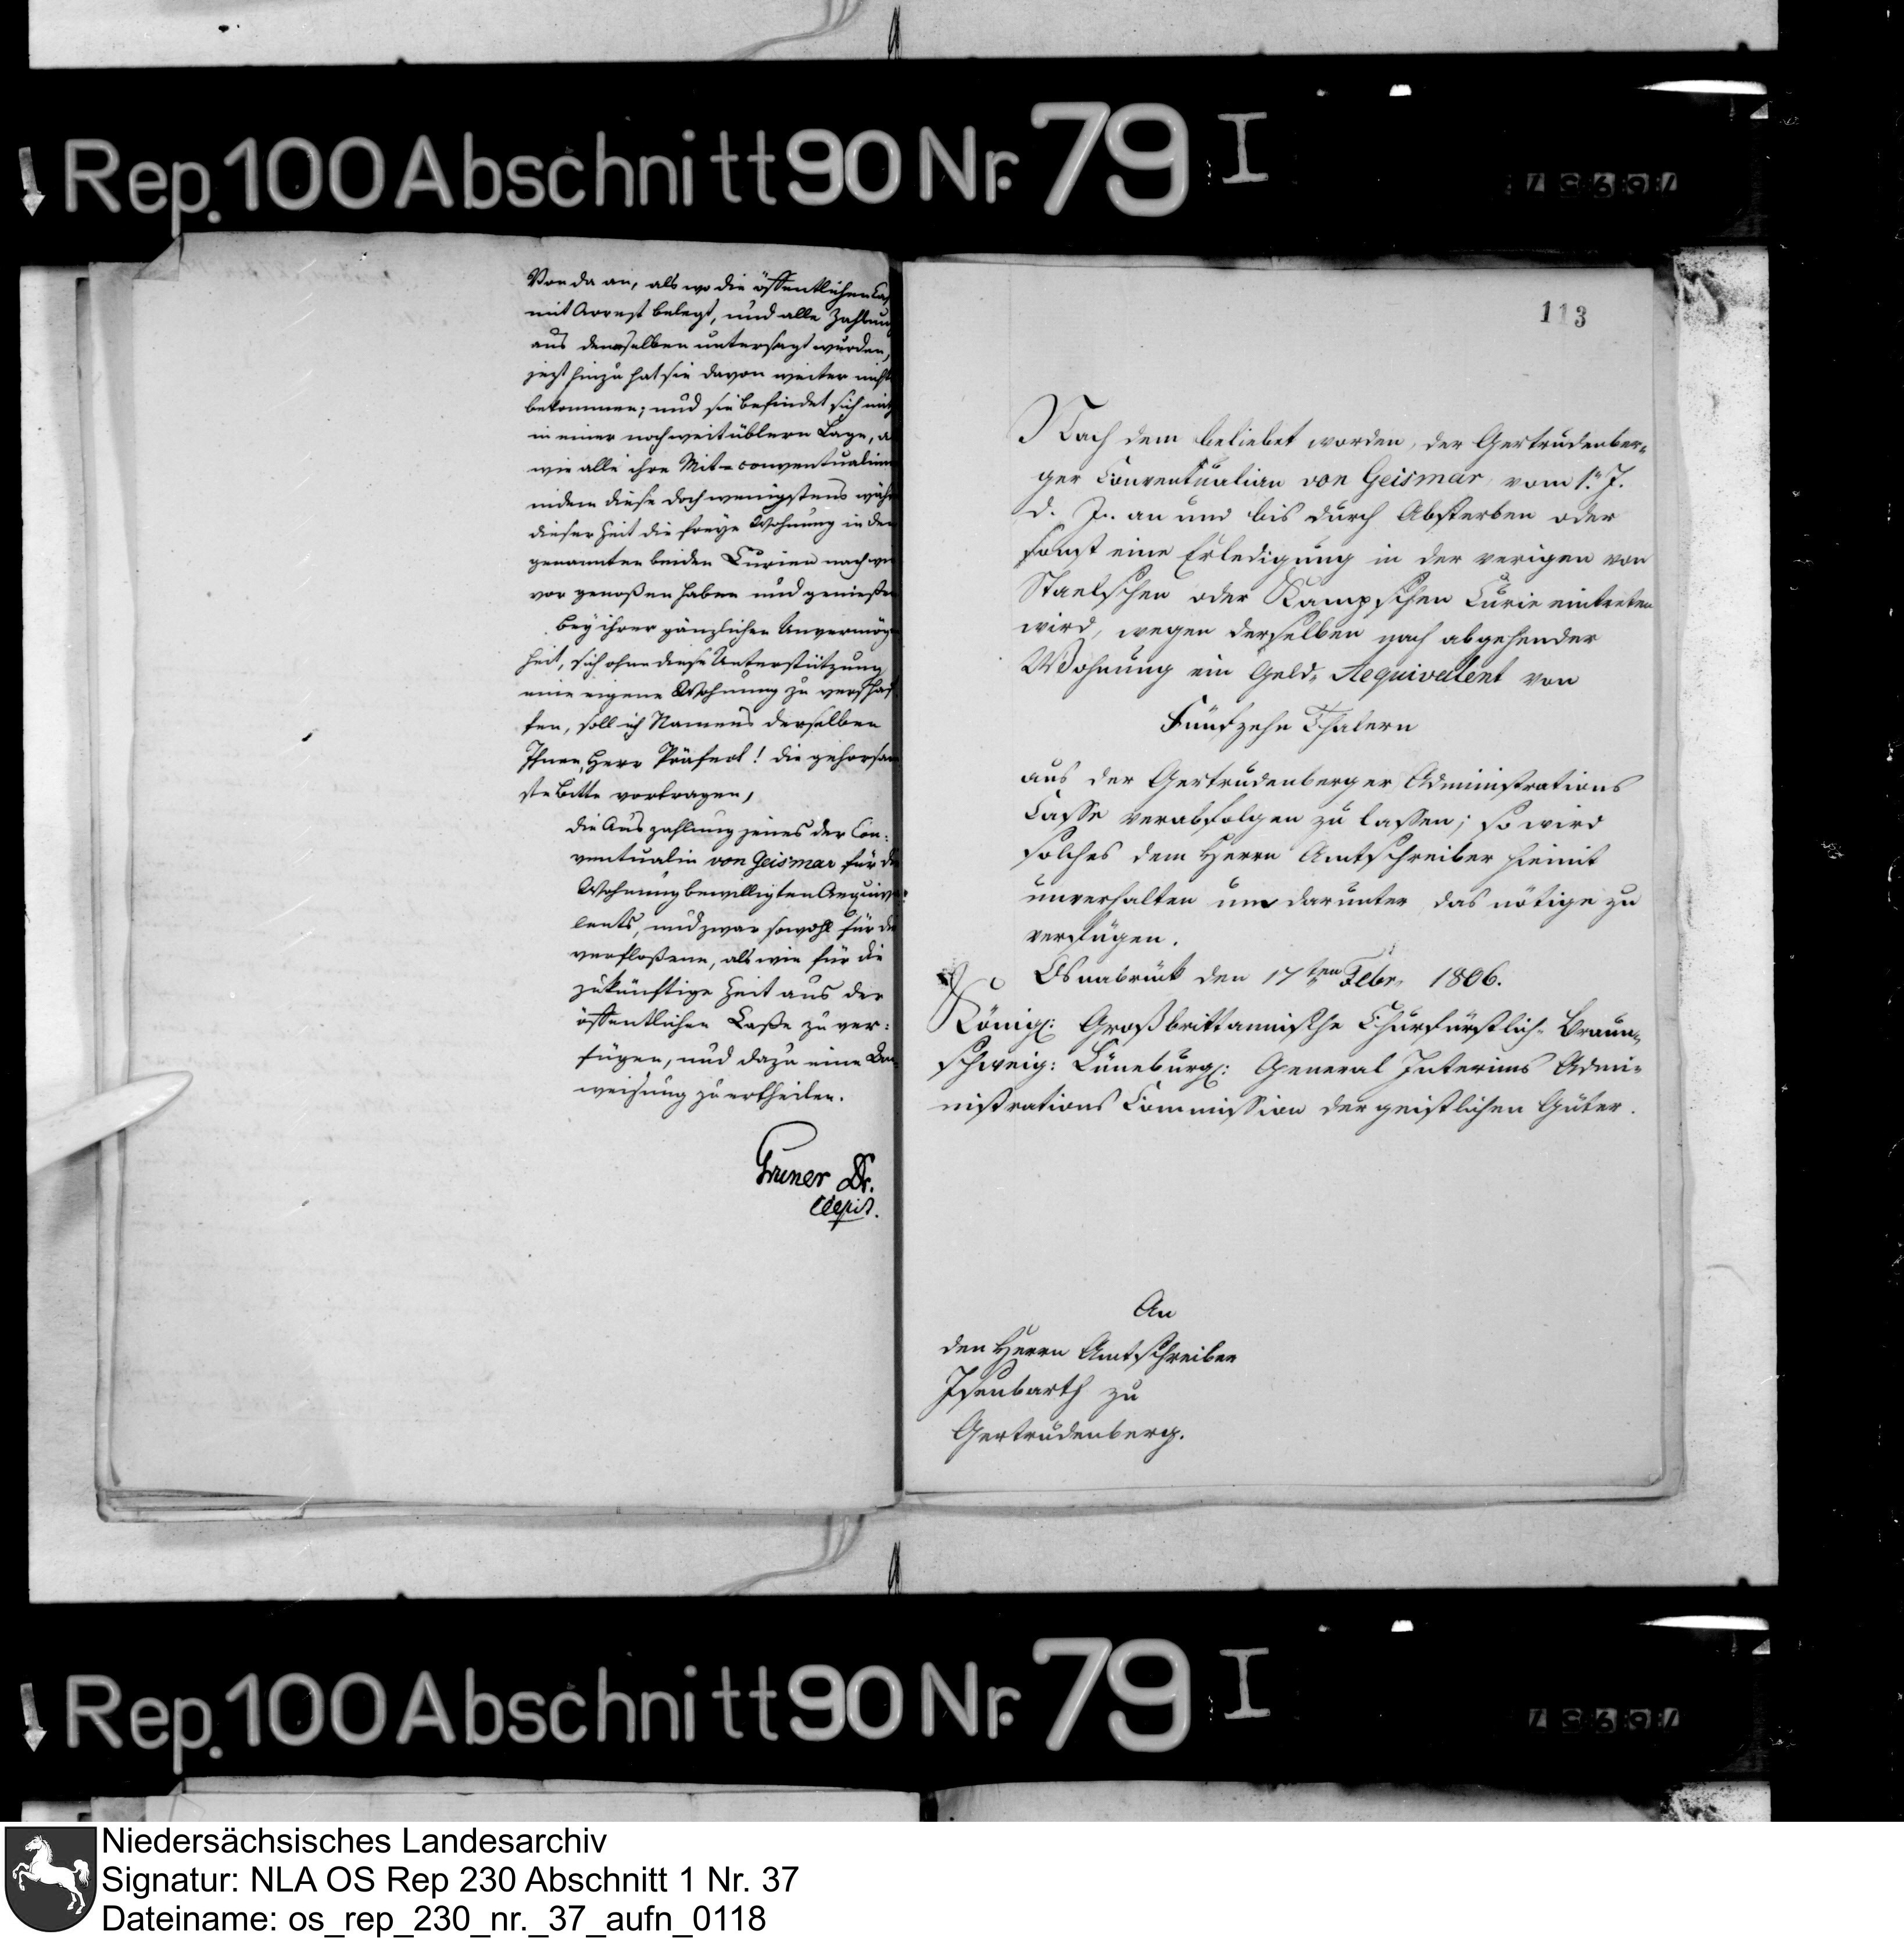 Rep. 100 Abschnitt 90 Nr. 79 I
Von da an, als wo die öffentlichen Cas
mit Arrest belegt, und alle Zahlung
aus denselben untersagt wurden,
jezt hinzu hat sie davon weiter nicht
bekommen; und sie befindet sich mit
in einer noch weit üblern Lage, a
wie alle ihre Mit-conventualinn
indem diese doch wenigstens währ
dieser Zeit die freye Wohnung in den
genannten beiden Curien nach wie
vor genoßen haben und genießen
bey ihrer gänzlichen Unvermög
heit, sich ohne diese Unterstützung
eine eigene Wohnung zu verschaf
fen, soll ich Namens derselben
Ihnen, Herr Präfect! die gehorsam
ste Bitte vortragen,
die Auszahlung jenes der Con-
ventualin von Geismar für die
Wohnung bewilligten Aequiva
lents, und zwar sowohl für die
verfloßene, als wie für die
zukünftige Zeit aus der
öffentlichen Caße zu ver-
fügen, und dazu eine An
weisung zu ertheilen.
Gruner Dr.
113
Nach dem beliebet worden, der Gertrudenber-
ger Conventualinn von Geismar, vom 1. J.
d. J. an und bis durch Absterben oder
sonst eine Erledigung in der vorigen von
Staelschen oder Kampschen Curie eintreten
wird, wegen derselben nach abgehender
Wohnung ein Geld-Aequivalent von
Fünfzehn Thalern
aus der Gertrudenberger Administrations
Casse verabfolgen zu lassen; so wird
solches dem Herrn Amtschreiber hiemit
unverhalten um darunter das nötige zu
verfügen.
Osnabrück den 17ten Febr. 1806.
Königl: Großbrittannische Churfürstlich-Braun-
schweig: Lüneburgl: General Interims Admi-
nistrations Commission der geistlichen Güter.
An
den Herrn Amtschreiber
Isenbarth zu
Gertrudenberg.
Rep. 100 Abschnitt 90 Nr. 79 I
Niedersächsisches Landesarchiv
Signatur: NLA OS Rep 230 Abschnitt 1 Nr. 37
Dateiname: os_rep_230_nr._37_aufn_0118